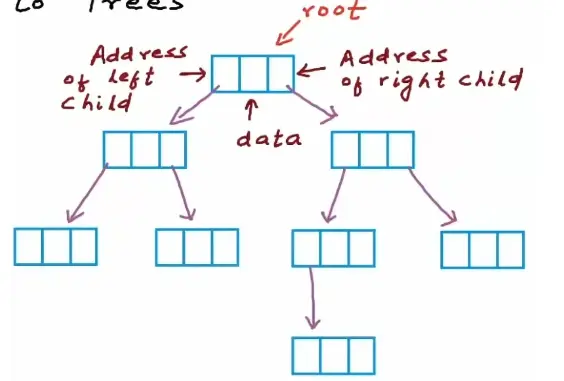 to Trees
root
Address
of left
child
Address
of right child
data